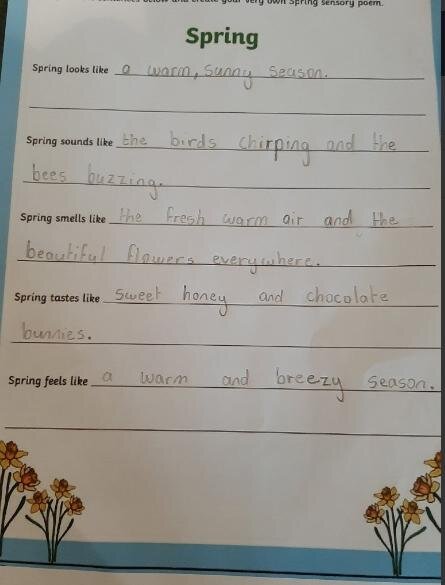 your very own Spring sensory poem.
Spring
Spring looks like a warm, sunny season.
Spring sounds like the birds chirping and the
bees buzzing.
Spring smells like the fresh warm air and the
beautiful flowers everywhere.
Spring tastes like sweet honey and chocolate
bunnies.
Spring feels like a warm and breezy season.